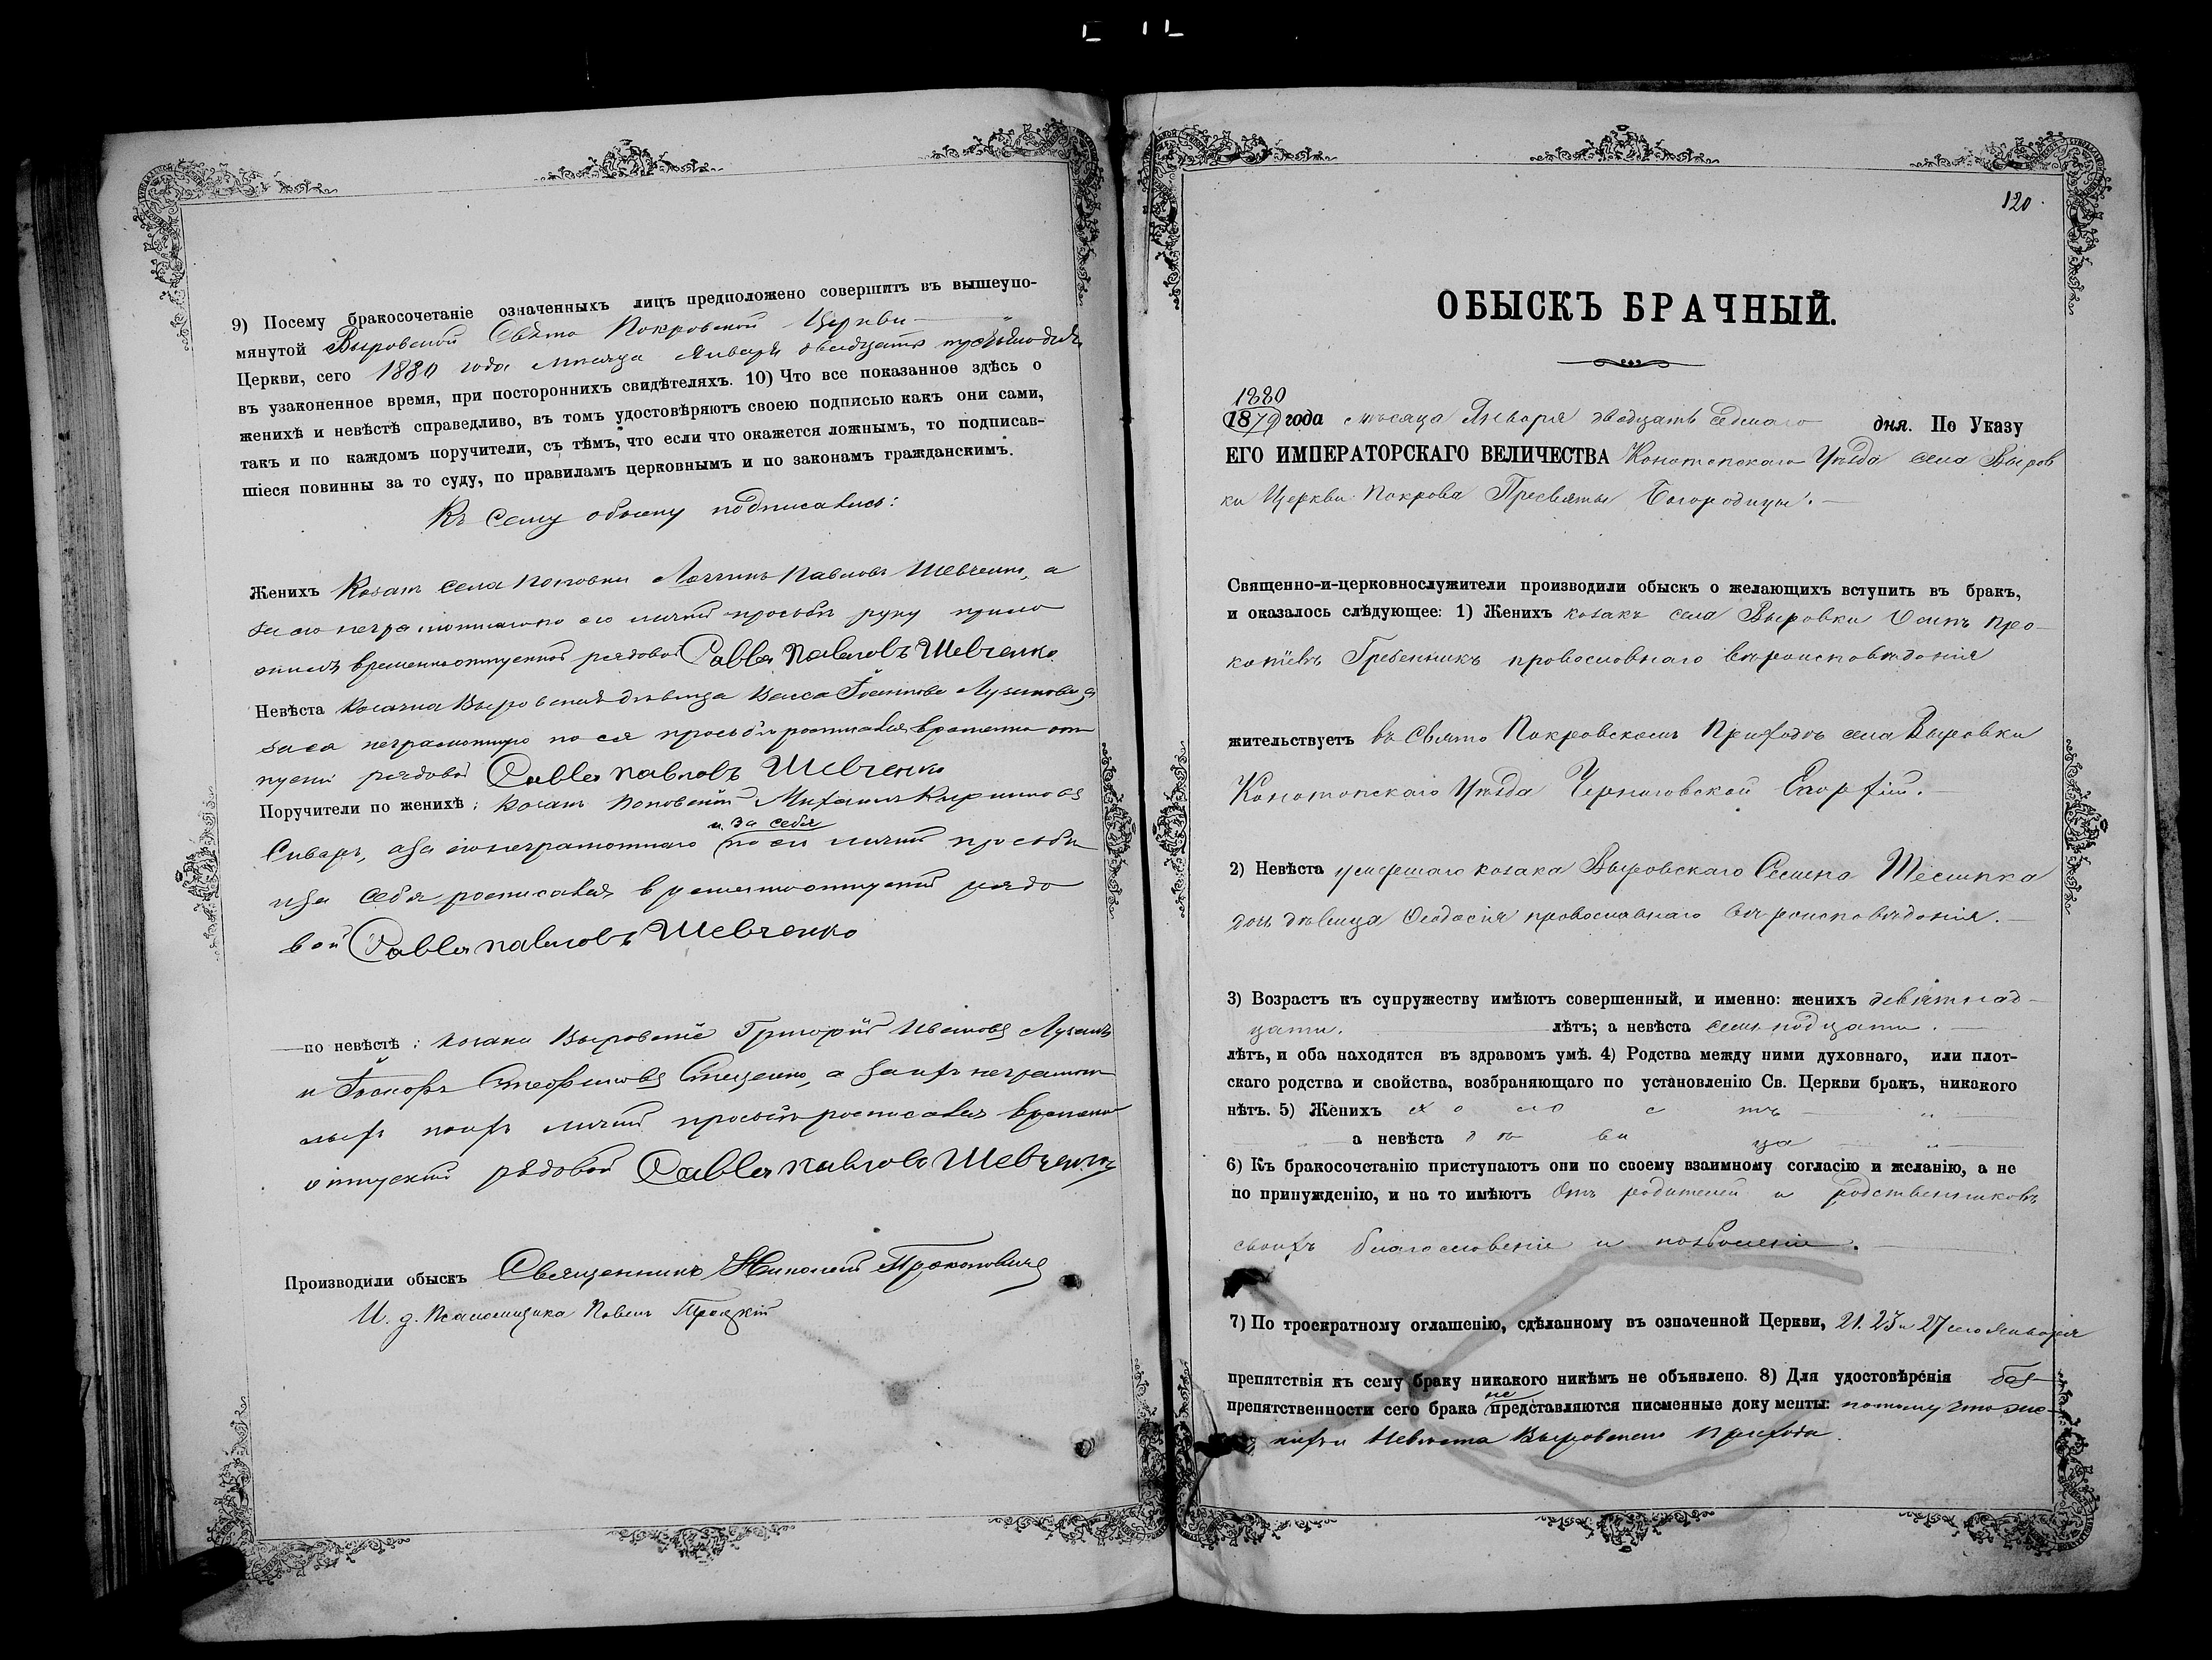 9) Посему бракосочетаніе означенныхъ лицъ предположено совершить въ вышеупо-
мянутой Выровской Свято Покровской Церкви
Церкви, сего 1880 года месяца Января двадцать
въ узаконенное время, при постороннихъ свидѣтеляхъ. 10) Что все показанное здѣсь о
женихѣ и невѣстѣ справедливо, въ томъ удостовѣряютъ своею подписью какъ они сами,
такъ и по каждомъ поручители, съ тѣмъ, что если что окажется ложнымъ, то подписав-
шіеся повинны за то суду, по правиламъ церковнымъ и по законамъ гражданскимъ.
Къ сему обыску подписались:
Женихъ Козакъ села Поповки Павловъ Шевченко, а
за его неграмотнаго по его личной просьбѣ руку прило
жилъ временноотпускной рядовой Савва Павловъ Шевченко
Невѣста Козачка Выровская дѣвица Васса
за ея неграмотную по ея просьбѣ росписался временно от
пускной рядовой Савва Павловъ Шевченко
Поручители по женихѣ: козакъ Поповскій Михаилъ Кириловъ
и за себя
Сиваръ, а за его неграмотнаго по его личной просьби
и за себя росписался временноотпускной рядо
вой Савва Павловъ Шевченко
—по невѣстѣ: козаки Выровскіе Григорій Ивановъ
и Стефановъ а за ихъ неграмот
ныхъ по ихъ личной просьбѣ росписался временно
отпускной рядовой Савва Павловъ Шевченко
Производили обыскъ Священникъ Николай Прокоповичъ
И. д. Псаломщика Павелъ Троцкій
120
ОБЫСКЪ БРАЧНЫЙ.
1880
1879 года месяца Января двадцать седмаго дня. По Указу
ЕГО ИМПЕРАТОРСКАГО ВЕЛИЧЕСТВА Конотопскаго Уѣзда села Выров
ки Церкви Покрова Пресвятыя Богородицы.—
Священно-и-церковнослужители производили обыскъ о желающихъ вступить въ бракъ,
и оказалось слѣдующее: 1) Женихъ козакъ села Выровки Осипъ Про-
копіевъ Гребенникъ провославнаго вѣроисповѣданія
жительствуетъ въ Свято Покровскомъ Приходѣ села Выровки
Конотопскаго Уѣзда Черниговской Епархіи.—
2) Невѣста умершаго козака Выровскаго Семена
дочь дѣвица Феодосія провославнаго вѣроисповѣданія.—
3) Возрастъ къ супружеству имѣютъ совершенный, и именно: женихъ девятнад-
цати. лѣтъ; а невѣста семьнадцати.
лѣтъ, и оба находятся въ здравомъ умѣ. 4) Родства между ними духовнаго, или плот-
скаго родства и свойства, возбраняющаго по установленію Св. Церкви бракъ, никакого
нѣтъ. 5) Женихъ холостъ
а невѣста дѣвица
6) Къ бракосочетанію приступаютъ они по своему взаимному согласію и желанію, а не
по принужденію, и на то имѣютъ Отъ родителей и родственниковъ
своихъ благословеніе и позволеніе.
7) По троекратному оглашенію, сдѣланному въ означенной Церкви, 21. 23 и 27 сего Января
препятствія къ сему браку никакого никѣмъ не объявлено. 8) Для удостовѣренія без
не
препятственности сего брака представляются писменные документы: потому что же-
нихъ и Невѣста Выровскаго Прихода.